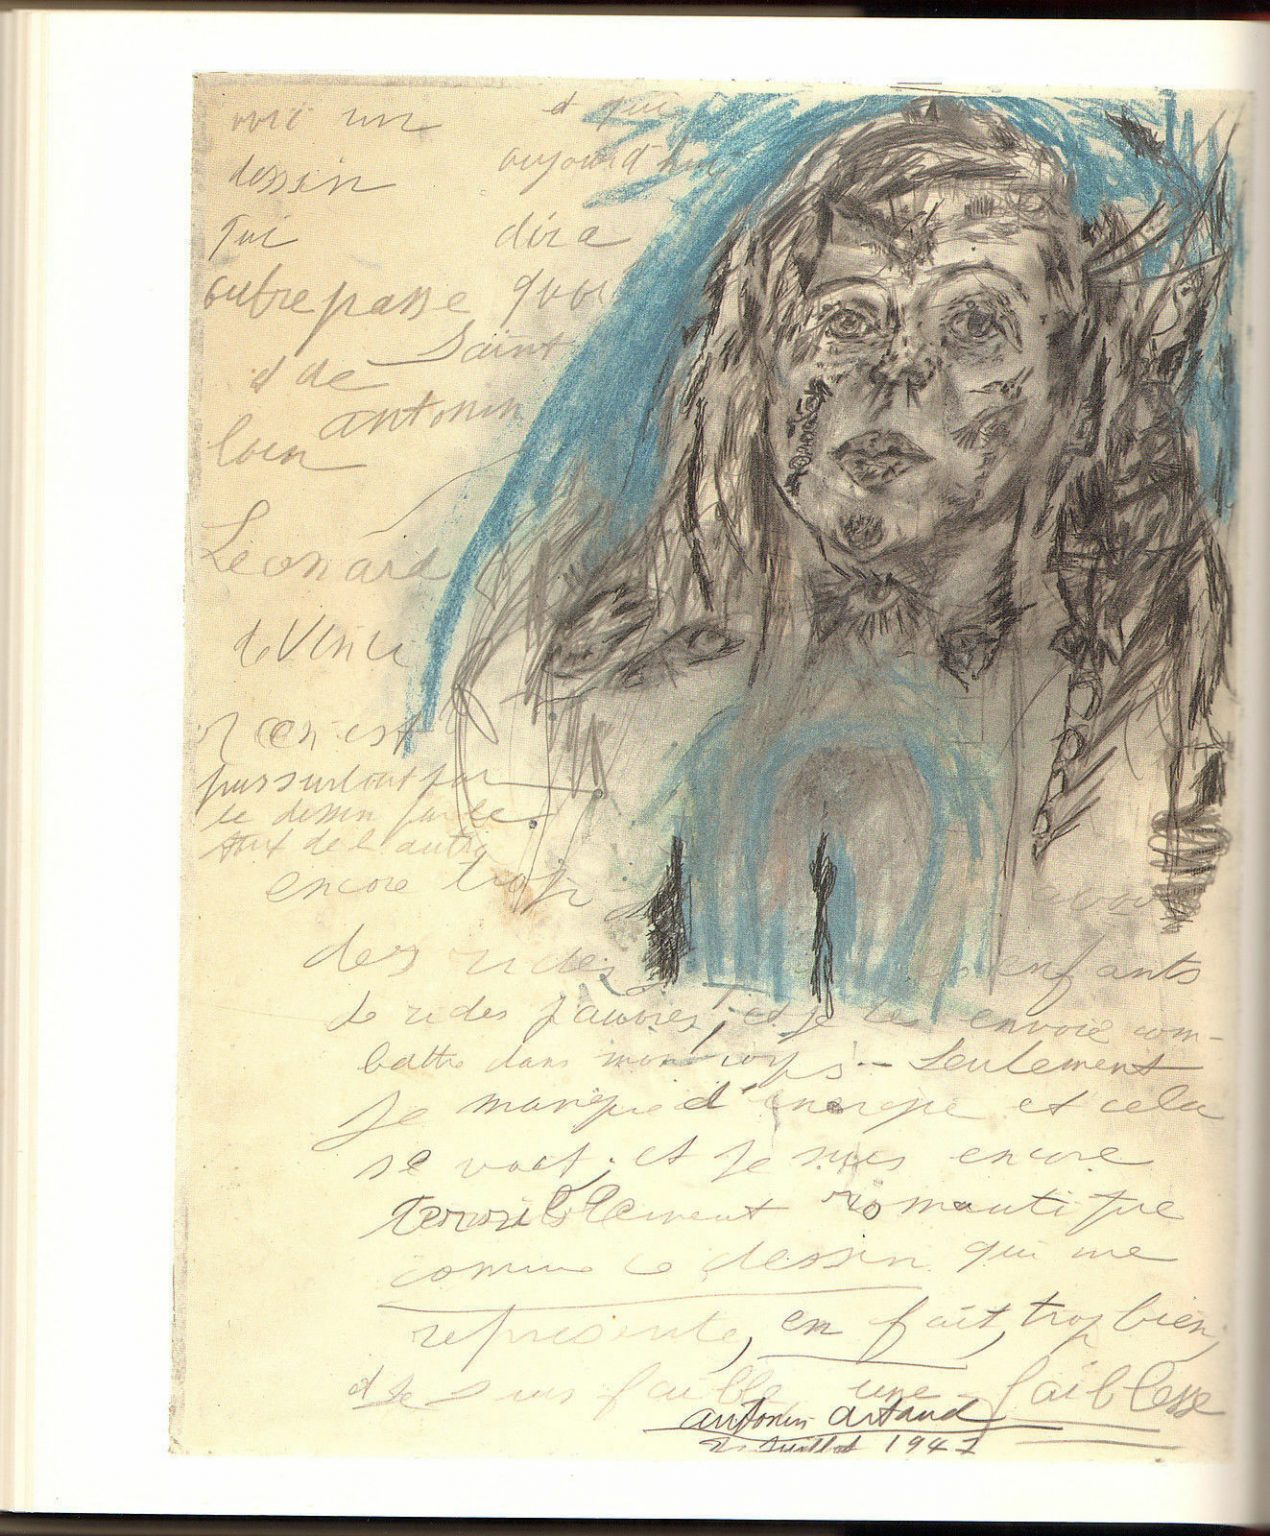 voici un
dessin
qui
outrepasse
et de
loin
Léonard
de Vinci
et qui
aujourd'hui
dira
quoi
Saint
antonin
ce n'est
pas surtout par
le dessin
de l'autre
encore trop
des rides
avoir
enfants
de rides pauvres, et je les envoie com-
battre dans mon corps – Seulement
je manque d'énergie et cela
se voit, et je suis encore
terriblement romantique
comme ce dessin qui me
représente, en fait, trop bien,
et je suis faible une faiblesse
antonin Artaud
Juillet 1947